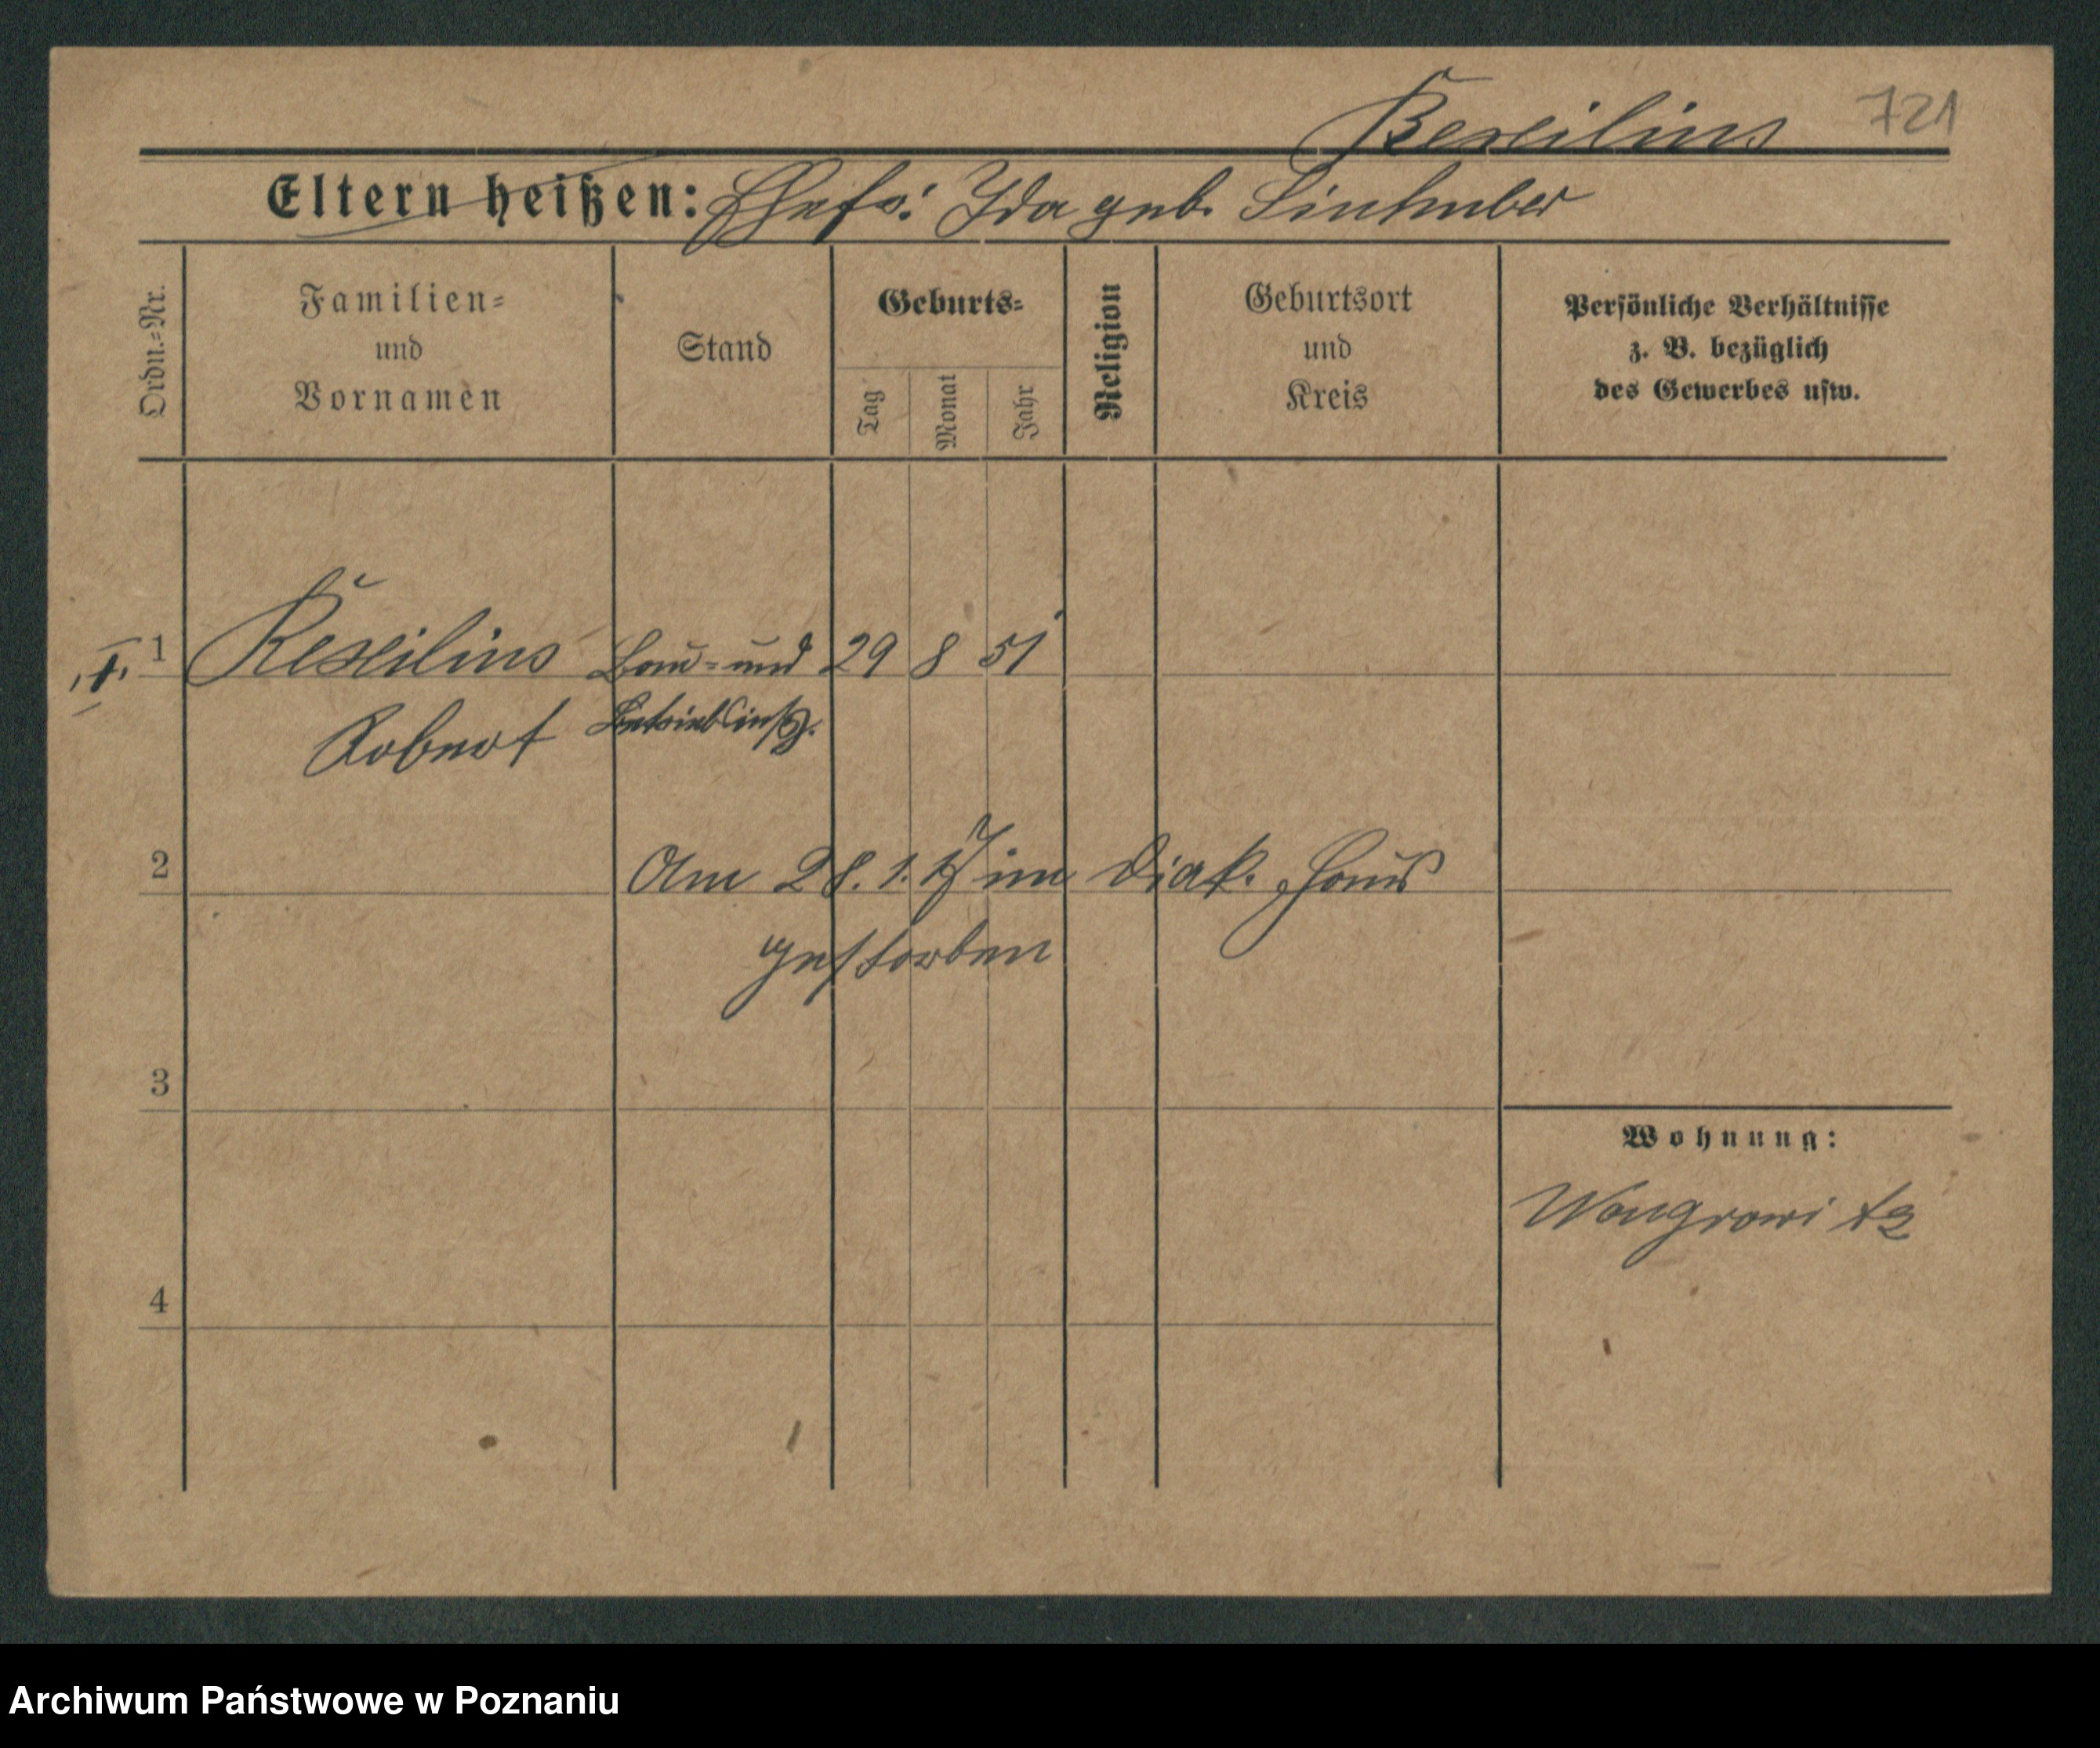 Rexilius 721
Eltern heißen: Ehefr: Ida geb. Linhuber
Ordn.=Nr.
Familien=
und
Vornamen
Stand
Geburts=
Tag
Monat
Jahr
Religion
Geburtsort
und
Kreis
Persönliche Verhältnisse
z. B. bezüglich
des Gewerbes usw.
1 Rexilius Bau= und 29 8 51
Robert Betriebsinsp.
2 Am 28. 1. 17 im Diak. Haus
gestorben
3
Wohnung:
Wongrowitz
4
Archiwum Państwowe w Poznaniu